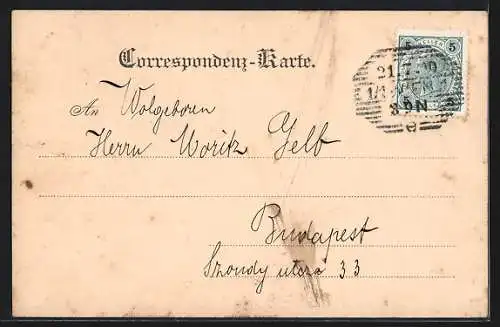 Correspondenz-Karte.
5 5
21
1/1
8 N
An Wolgeboren
Herrn Moritz Gelb
Budapest
Szondy utcza 33